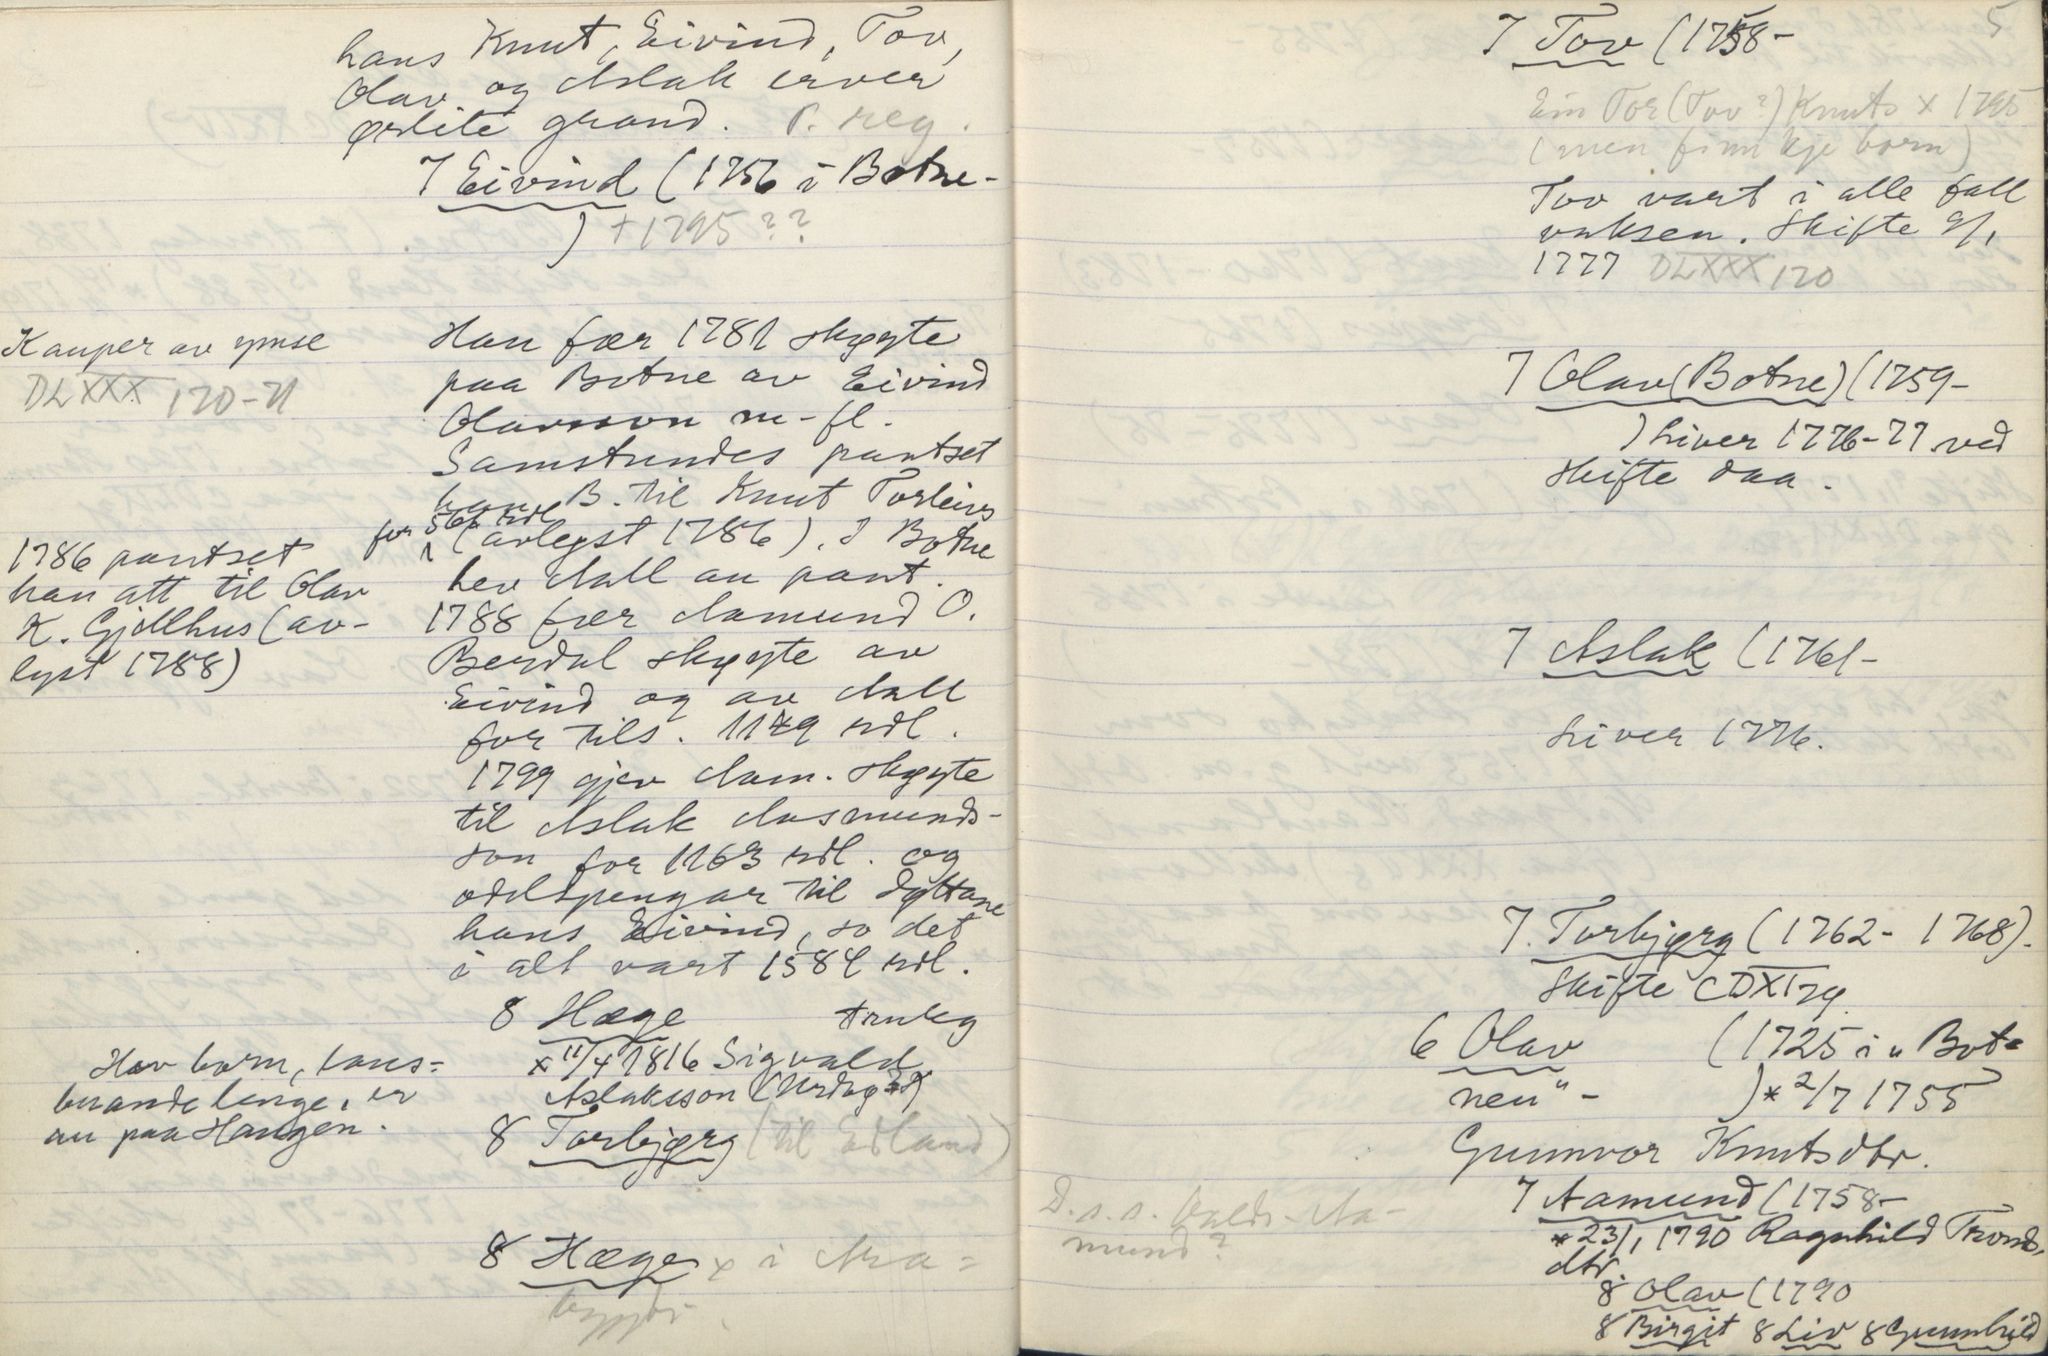 hans Knut, Eivind, Tov,
Olav og Aslak erver
ørlite grand. P. reg.
7 Eivind (1756 i Botne-
) +1795??
Kauper av ymse
DLXXX 170-71
Han fær 1781 skøyte
paa Botne av Eivind
Olavsson m-fl.
Samstundes pantset
han B. til Knut Torleivs
for 566 rdl (avløyst 1786). I Botne
hev Aall au pant.
1786 pantset
han att til Olav
K. Gjellhus (av-
lyst 1788)
1788 fær Aamund O.
Berdal skøyte av
Eivind og av Aall
for tils. 1149 rdl.
1799 gjev Aam. skøyte
til Aslak Aasmunds-
son for 1163 rdl. og
odelspengar til døttane
hans Eivind, so det
i alt vart 1584 rdl.
8 Hæge
x 11/4 1816 Sigvald
Aslaksson
Hev born, laus-
buande lenge, er
au paa Haugen.
8 Torbjørg (til Edland)
8 Hæge x i Ara-
bygdi.
5
7 Tov (1758-
Ein Tor (Tov?) Knuts x 1795
(men finn kje born)
Tov vart i alle fall
vaksen. Skifte 9/1
1777 DLXXX 170
7 Olav (Botne) (1759-
) Liver 1776-77 ved
skifte daa.
7 Aslak (1761-
Liver 1776.
7. Torbjørg (1762- 1768).
Skifte CDXI 79
6 Olav (1725 i "Bot-
nen"- )* 2/7 1755
Gunnvor Knutsdtr.
7 Aamund (1758-
D.s.s. Aa-
mund?
* 23/1 1790 Ragnhild Tronds-
dtr.
8 Olav (1790
8 Birgit 8 Liv 8 Gunnhild